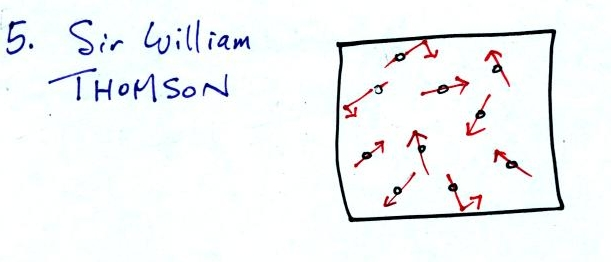 5. Sir William
THOMSON